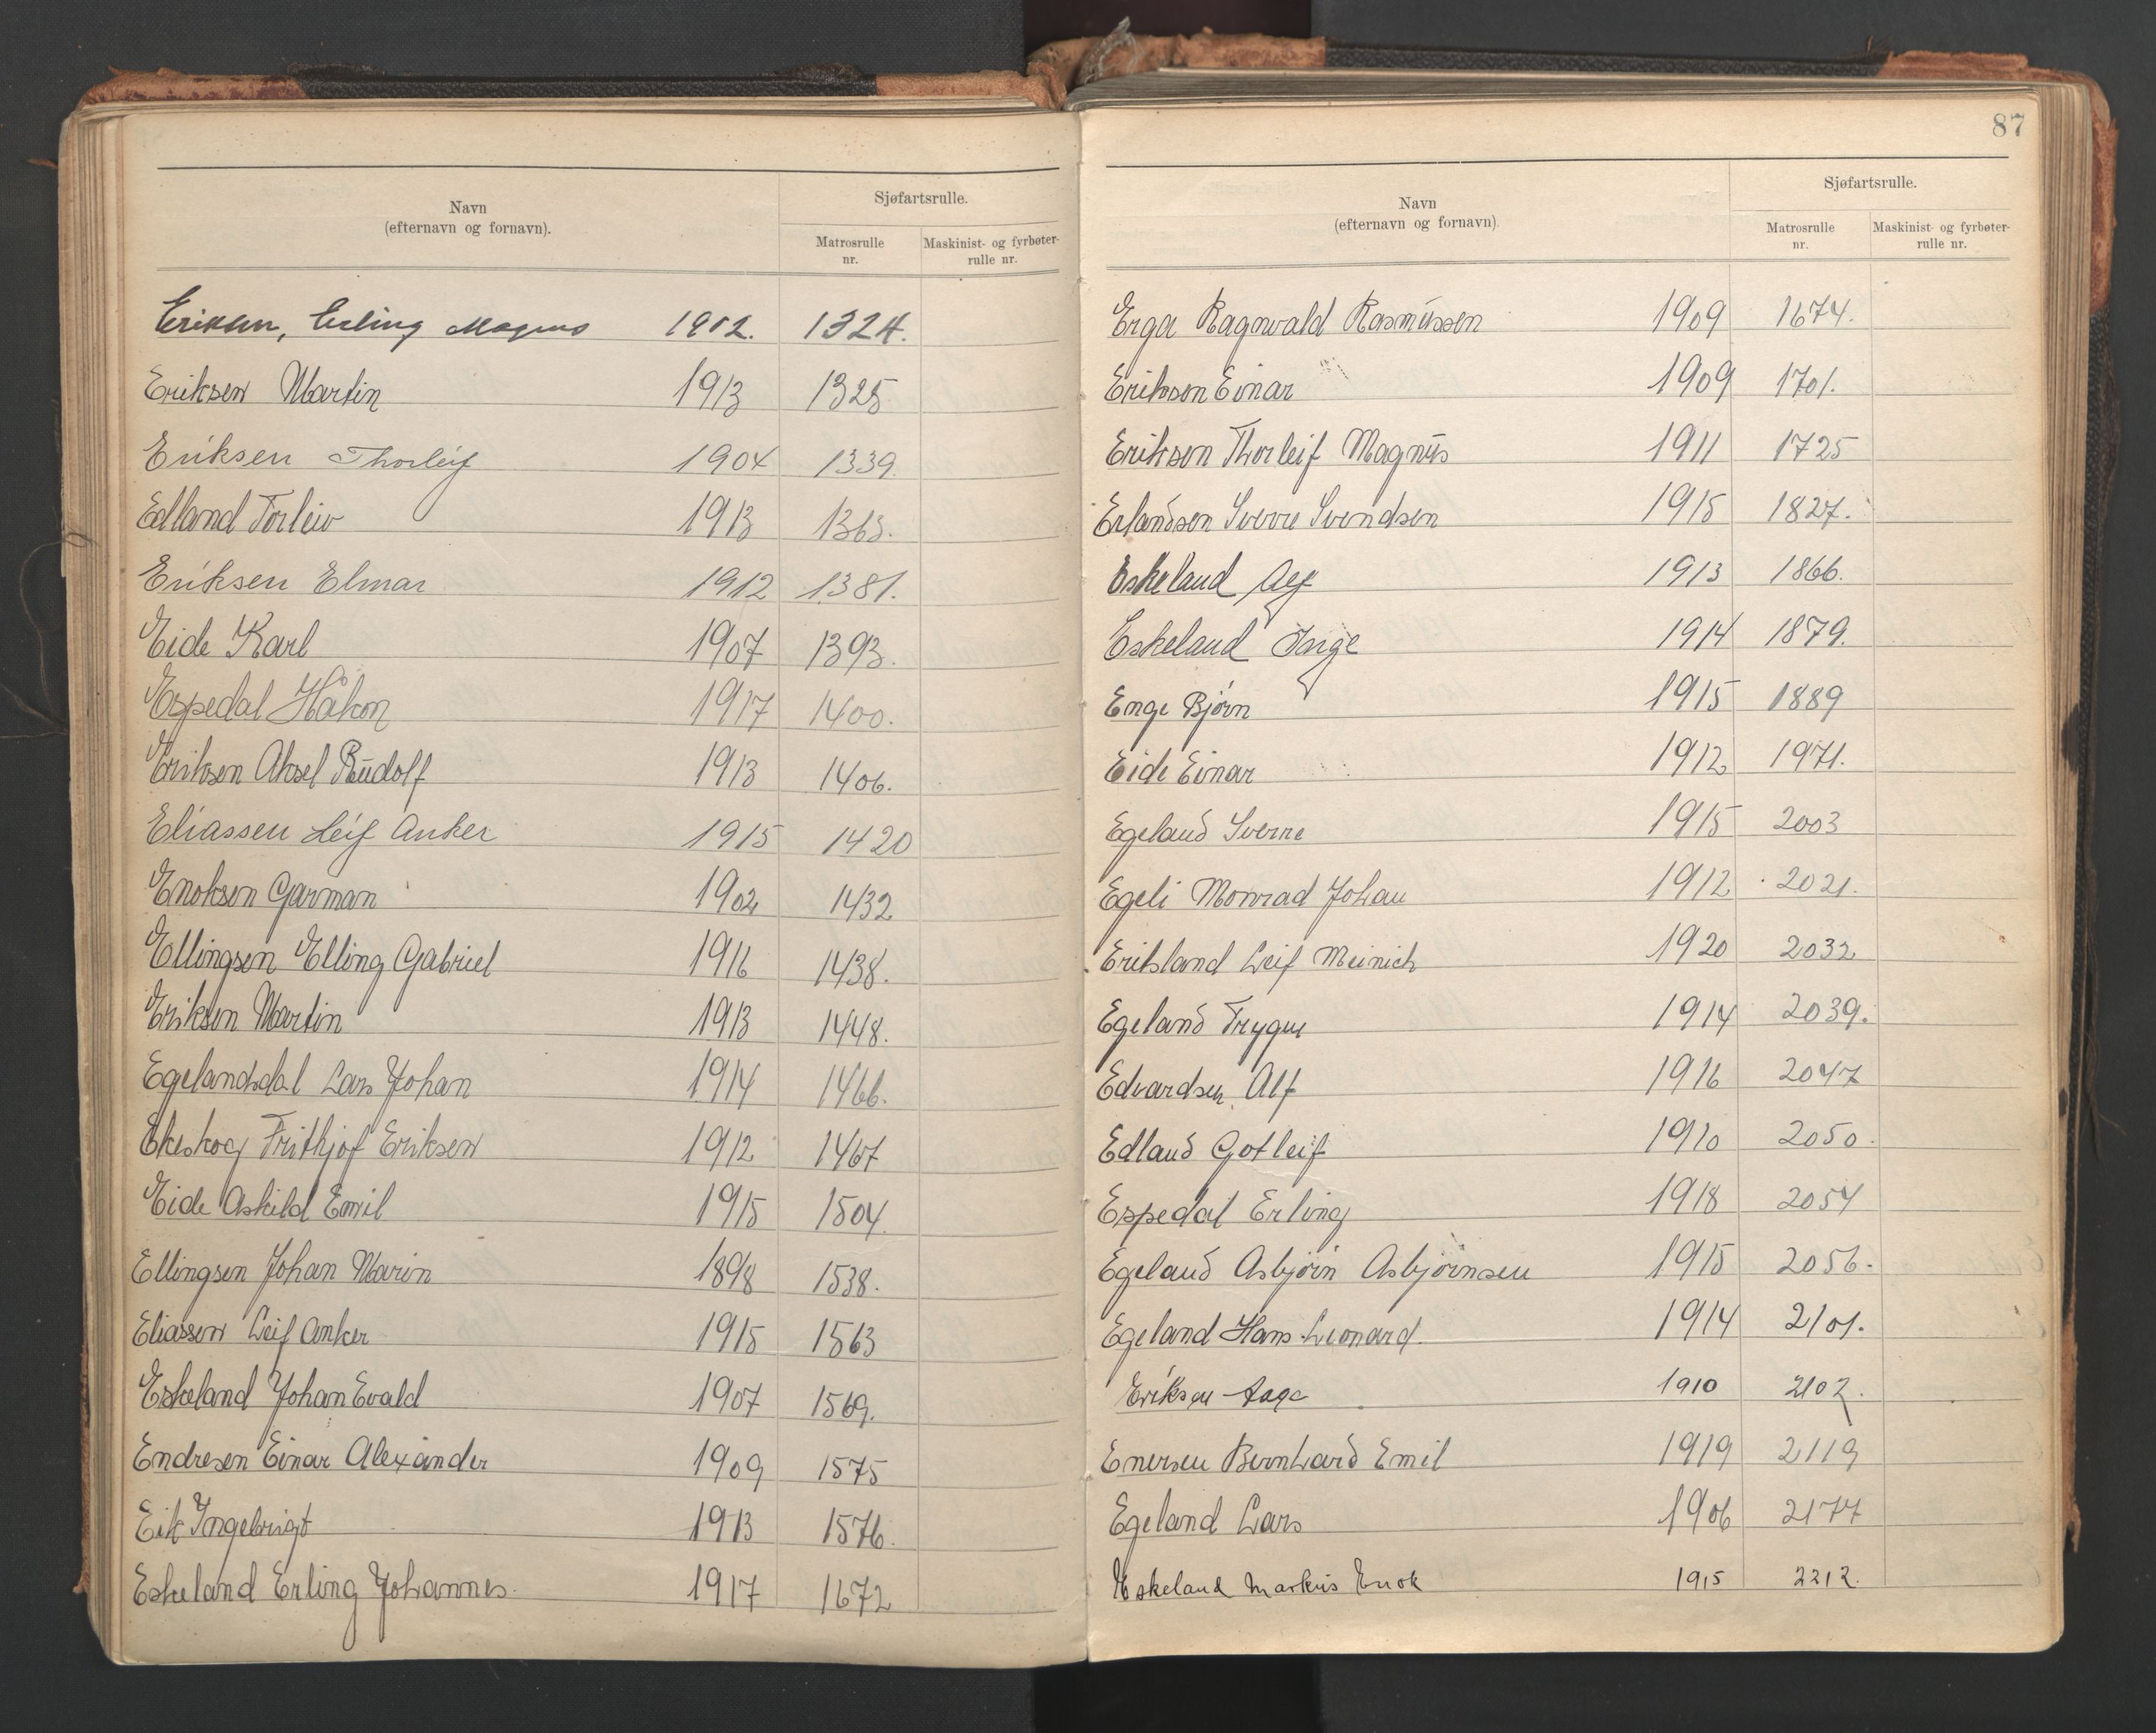 Navn
(efternavn og fornavn).
Sjøfartsrulle.
Matrosrulle
nr.
Maskinist- og fyrbøter-
rulle nr.
Eriksen, Erling Magnus 1902. 1324.
Eriksen Martin 1913 1325
Eriksen Thorleif 1904 1339.
Edland Torleiv 1913 1363.
Eriksen Elmar 1912 1381.
Eide Karl 1907 1393.
Espedal Håkon 1917 1400.
Eriksen Aksel Rudolf 1913 1406.
Eliassen Leif Anker 1915 1420
Enoksen Garman 1902 1432
Ellingsen Elling Gabriel 1916 1438.
Eriksen Martin 1913 1448.
Egelandsdal Lars Johan 1914 1466.
Ekeskog Frithjof Eriksen 1912 1467
Eide Askild Emil 1915 1504.
Ellingsen Johan Marin 1898 1538.
Eliassen Leif Anker 1915 1563
Eskeland Johan Evald 1907 1569.
Endresen Einar Alexander 1909 1575
Eik Ingebrigt 1913 1576.
Eskeland Erling Johannes. 1917 1672
87
Navn
(efternavn og fornavn).
Sjøfartsrulle.
Matrosrulle
nr.
Maskinist- og fyrbøter-
rulle nr.
Erga Ragnvald Rasmussen 1909 1674.
Eriksen Einar 1909 1701.
Eriksen Thorleif Magnus 1911 1725
Erlandsen Sverre Svendsen 1915 1827.
Eskeland 1913 1866.
Eskeland Inge 1914 1879.
Enge Bjørn 1915 1889
Eide Einar 1912 1971.
Egeland Sverre 1915 2003
Egeli Monrad Johan 1912 2021.
Eriksland Leif Meinich 1920 2032
Egeland Trygve 1914 2039.
Edvardsen Alf 1916 2047
Edland Gotleif 1910 2050.
Espedal Erling 1918 2054
Egeland Asbjørn Asbjørnsen 1915 2056.
Egeland Hans Leonard. 1914 2101.
Eriksen Aage 1910 2102.
Enersen Bernhard Emil 1919 2119
Egeland Lars 1906 2177
Eskeland Markus Enok 1915 2212.